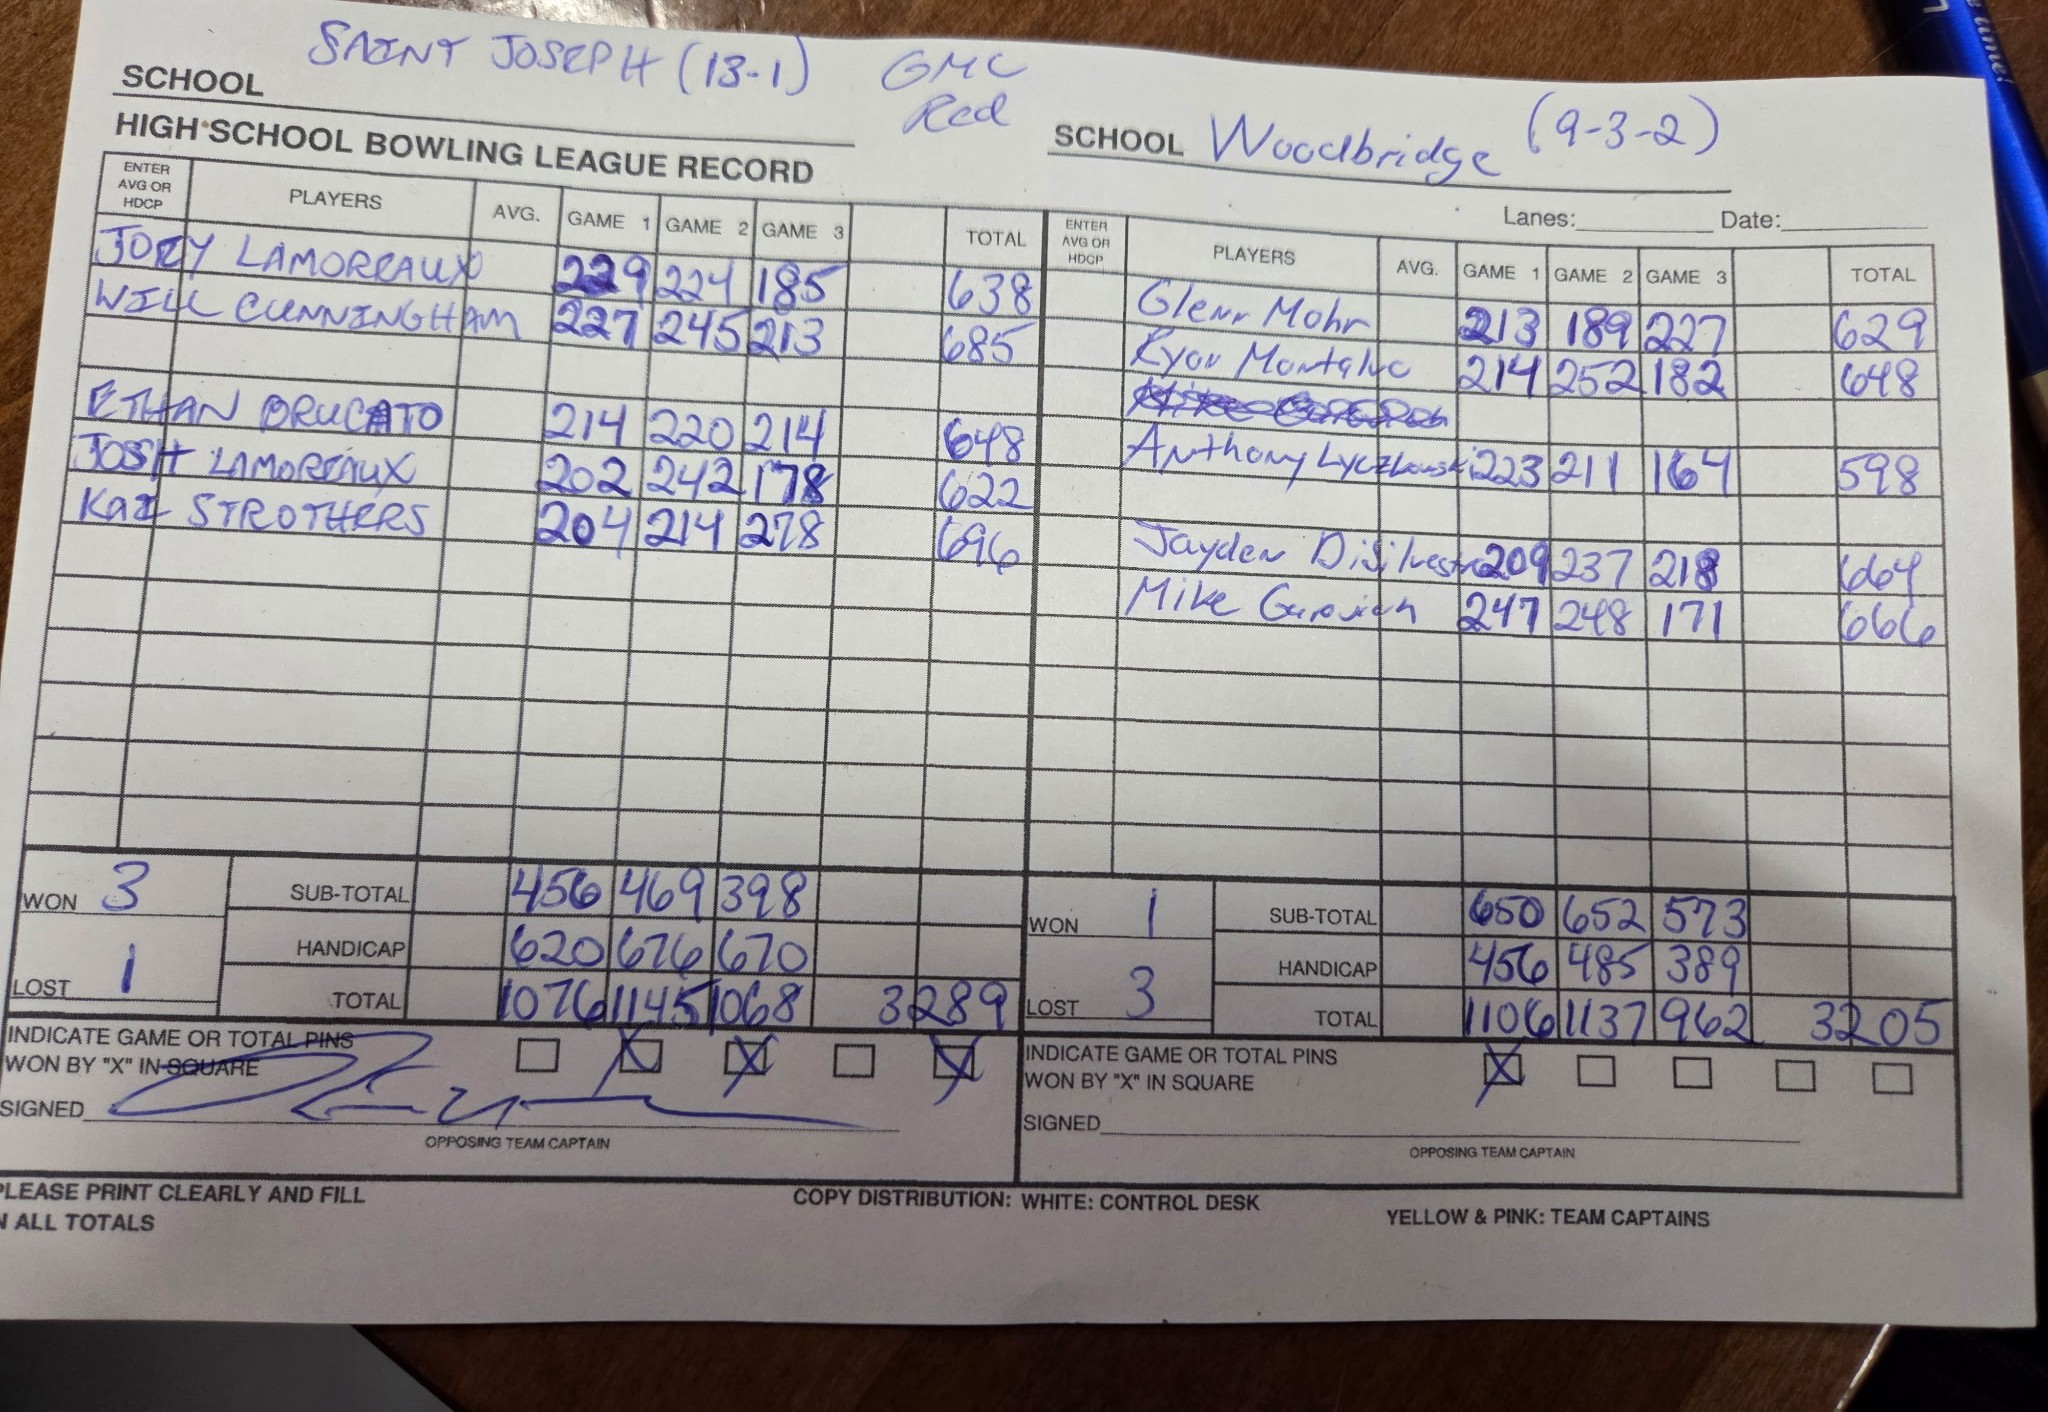 SCHOOL SAINT JOSEPH (13-1) GMC
Red
HIGH SCHOOL BOWLING LEAGUE RECORD
ENTER AVG OR HDCP PLAYERS AVG. GAME 1 GAME 2 GAME 3 TOTAL
JOEY LAMOREAUX 229 224 185 638
WILL CUNNINGHAM 227 245 213 685
ETHAN BRUCATO 214 220 214 648
JOSH LAMOREAUX 202 242 178 622
KAI STROTHERS 204 214 278 696
WON 3 SUB-TOTAL 456 469 398
HANDICAP 620 676 670
LOST 1 TOTAL 1076 1145 1068 3289
INDICATE GAME OR TOTAL PINS
WON BY "X" IN SQUARE X X X
SIGNED
OPPOSING TEAM CAPTAIN
SCHOOL Woodbridge (9-3-2)
Lanes: Date:
ENTER AVG OR HDCP PLAYERS AVG. GAME 1 GAME 2 GAME 3 TOTAL
Glenn Mohr 213 189 227 629
Ryan Montalvo 214 252 182 648
Anthony Lyczkowski 223 211 164 598
Jayden DiSilvestro 209 237 218 664
Mike 247 248 171 666
WON 1 SUB-TOTAL 650 652 573
HANDICAP 456 485 389
LOST 3 TOTAL 1106 1137 962 3205
INDICATE GAME OR TOTAL PINS
WON BY "X" IN SQUARE X
SIGNED
OPPOSING TEAM CAPTAIN
PLEASE PRINT CLEARLY AND FILL
N ALL TOTALS
COPY DISTRIBUTION: WHITE: CONTROL DESK
YELLOW & PINK: TEAM CAPTAINS